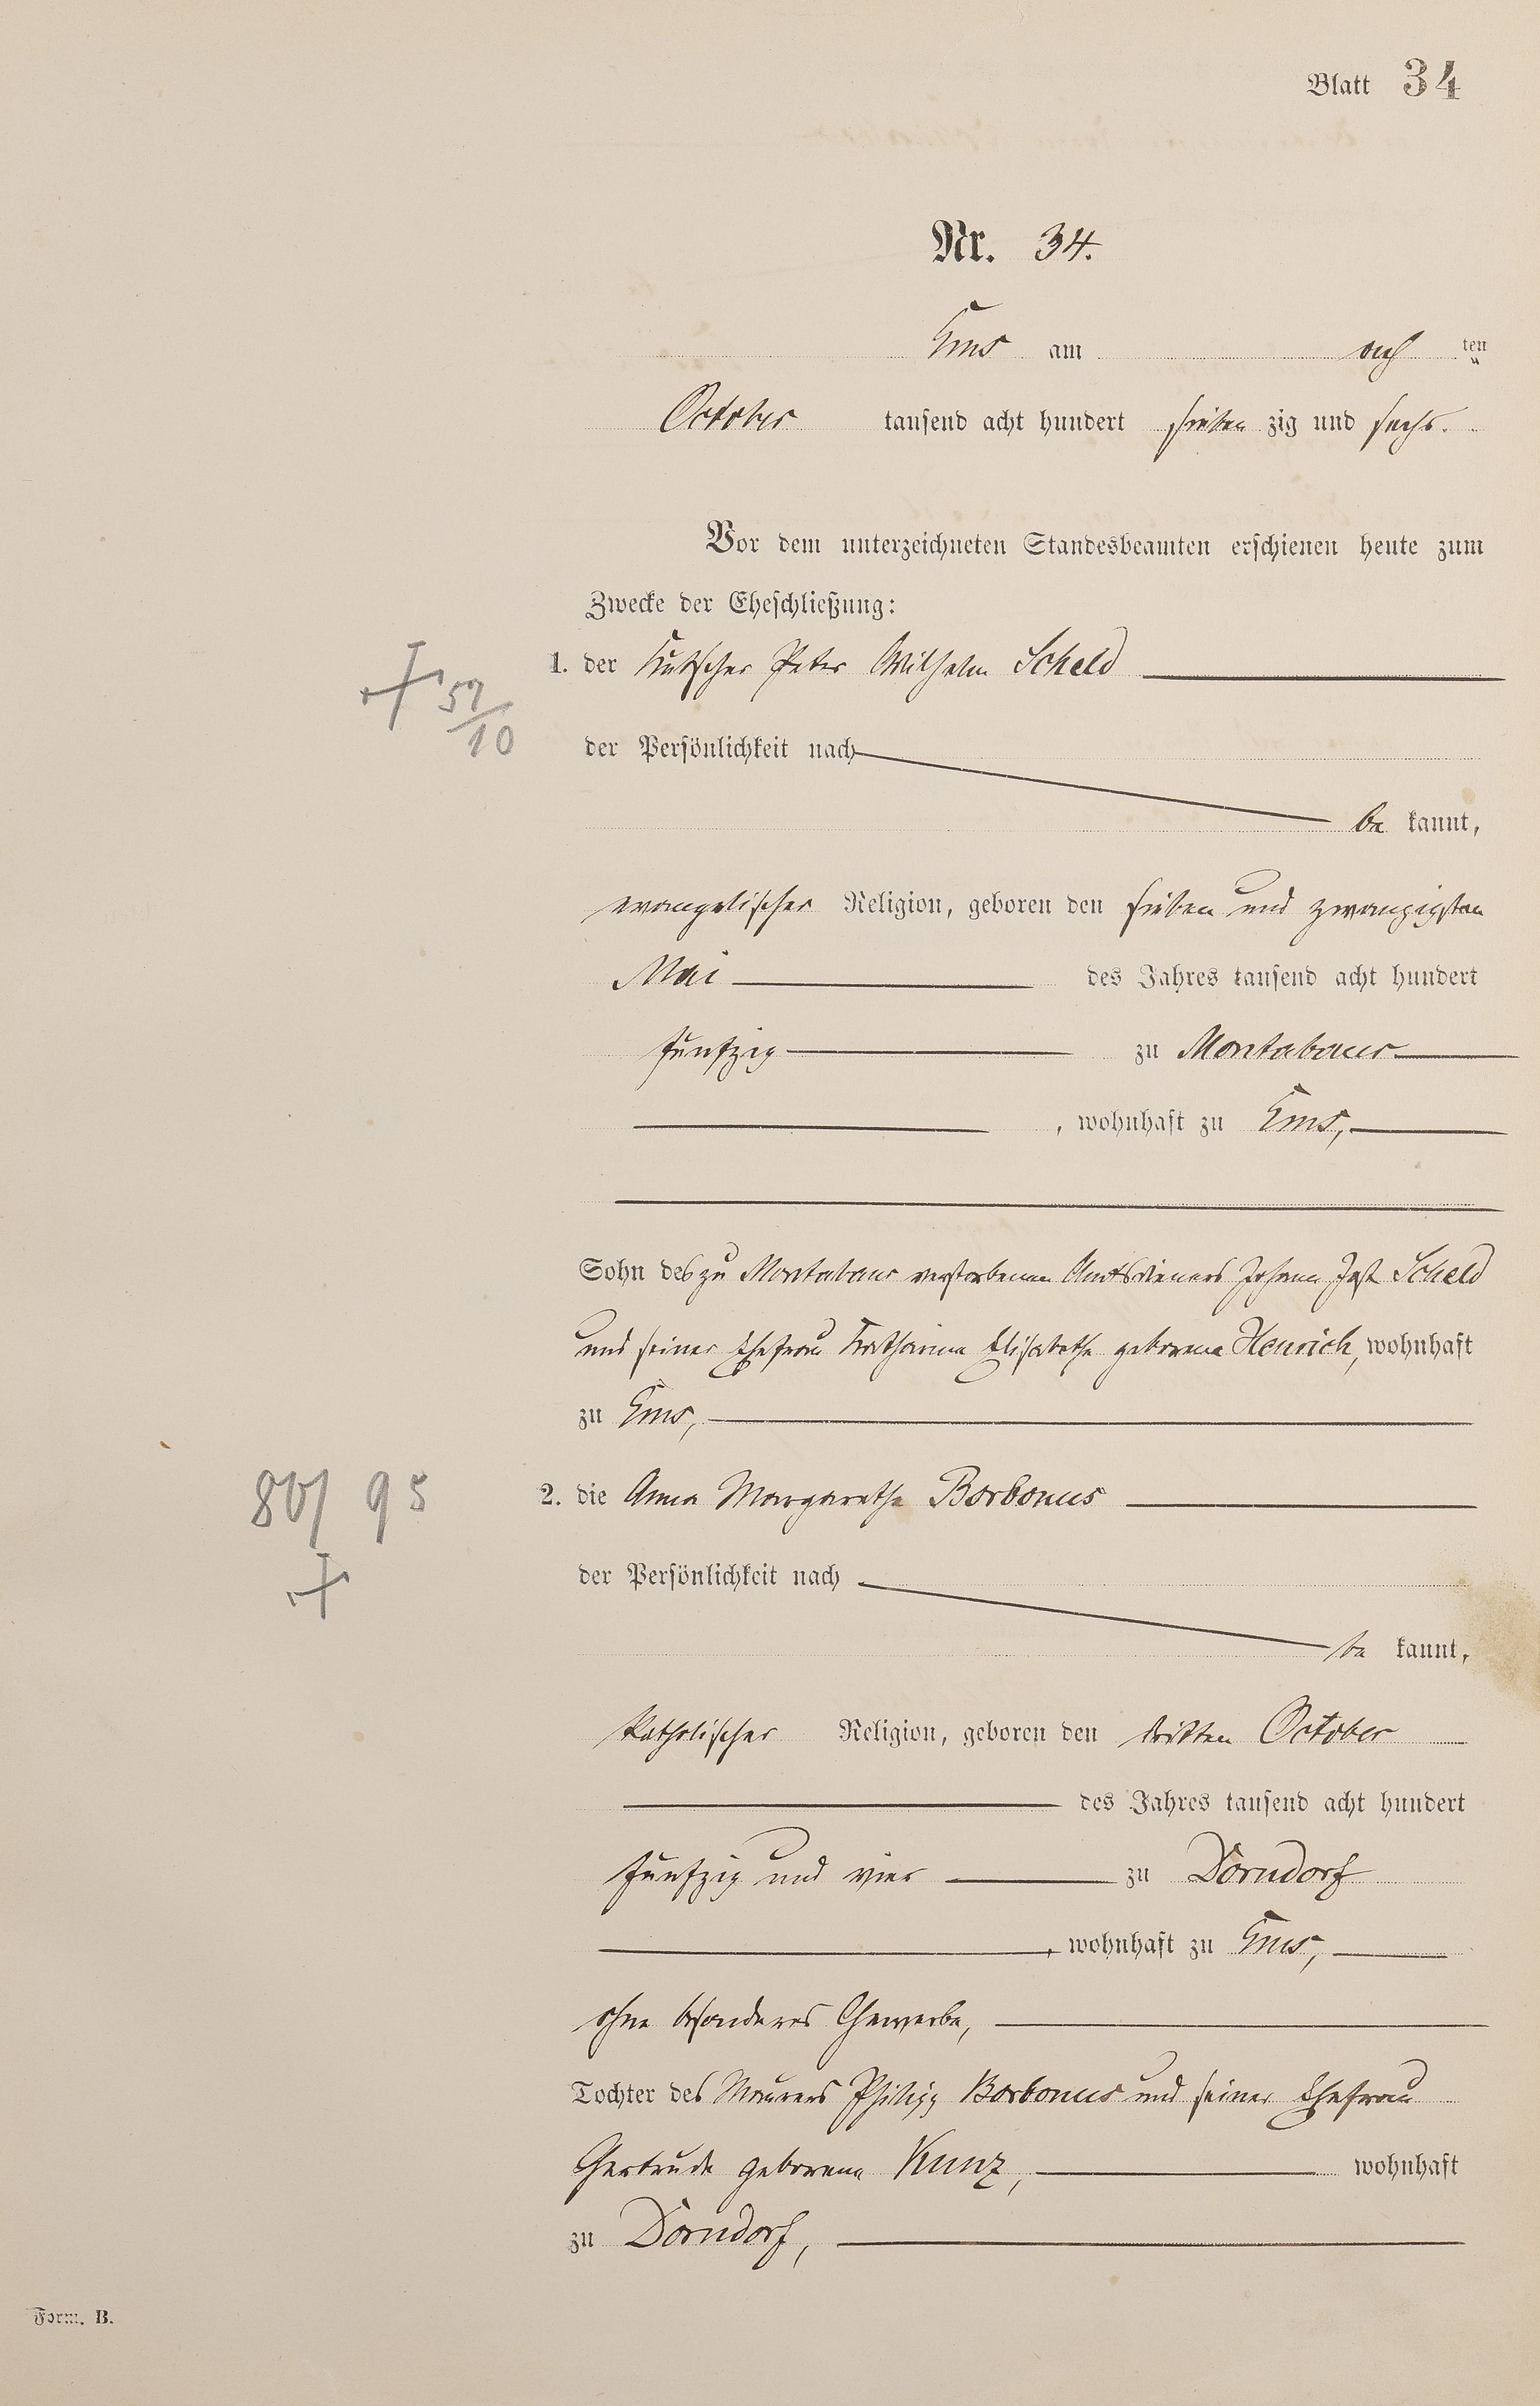 Blatt 34
Nr. 34.
Ems am ach ten
October tausend acht hundert sieben zig und sechs.
Vor dem unterzeichneten Standesbeamten erschienen heute zum
Zwecke der Eheschließung:
1. der Kutscher Peter Wilhelm Scheld
+ 57/10
der Persönlichkeit nach
be kannt,
evangelischer Religion, geboren den sieben und zwanzigsten
Mai des Jahres tausend acht hundert
fünfzig zu Montabaur
, wohnhaft zu Ems,
Sohn des zu Montabaur verstorbenen Amtsdieners Johann Jost Scheld
und seiner Ehefrau Katharina Elisabethe geborene Henrich, wohnhaft
zu Ems,
80/95
+
2. die Anna Margarethe Borbonus
der Persönlichkeit nach
be kannt,
katholischer Religion, geboren den dritten October
des Jahres tausend acht hundert
fünfzig und vier zu Dorndorf
, wohnhaft zu Ems,
ohne besonderes Gewerbe,
Tochter des Maurers Philipp Borbonus und seiner Ehefrau
Gertrude geborene Kunz, wohnhaft
zu Dorndorf,
Form. B.